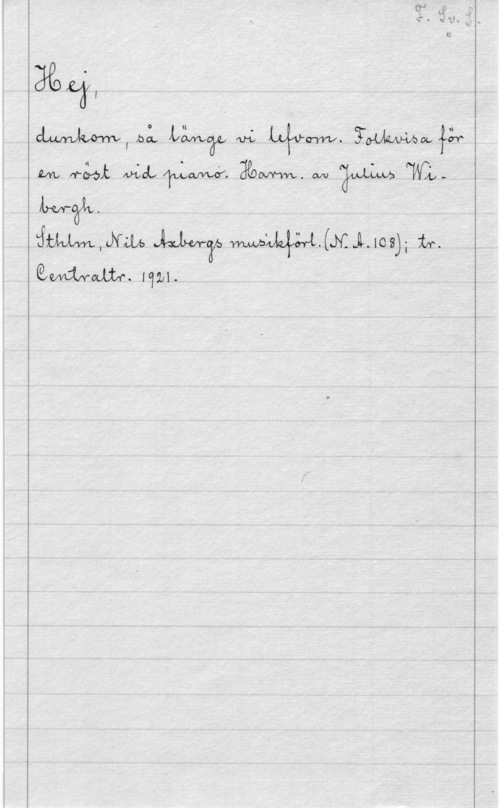 F. Sv. S.
Hej,
dunkom, så länge vi lefvom. Folkvisa för
en röst vid piano. Harm. av Julius Wi-
bergh.
Sthlm, Nils Axbergs musikförl. (N. A. 108); tr.
Centraltr. 1921.